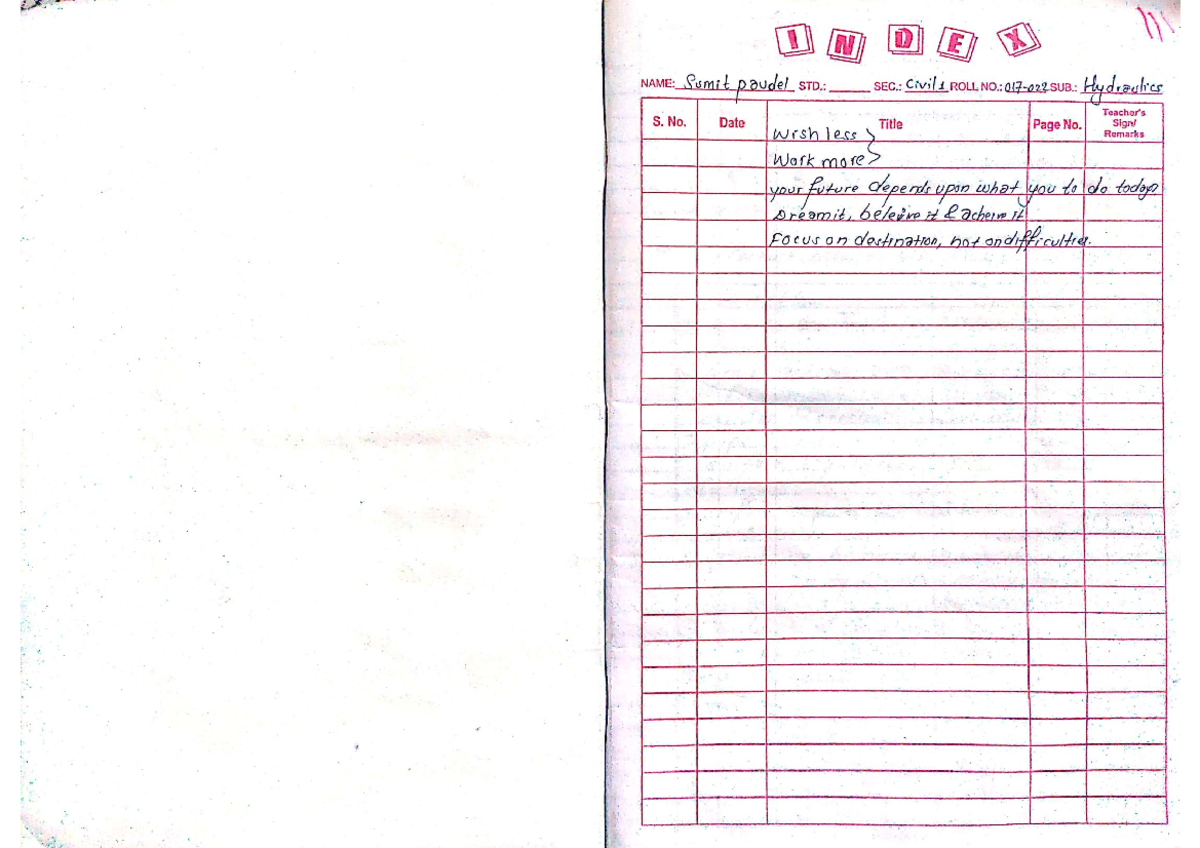 INDEX
NAME: Sumit paudel STD.: SEC.: Civil 1 ROLL NO.: 017-022 SUB.: Hydraulics
S. No. Date Title Page No. Teacher's Sign/ Remarks
Wish less
Work more
your future depends upon what you to do today
Dream it, beleive it & acheive it
Focus on destination, not on difficulties.